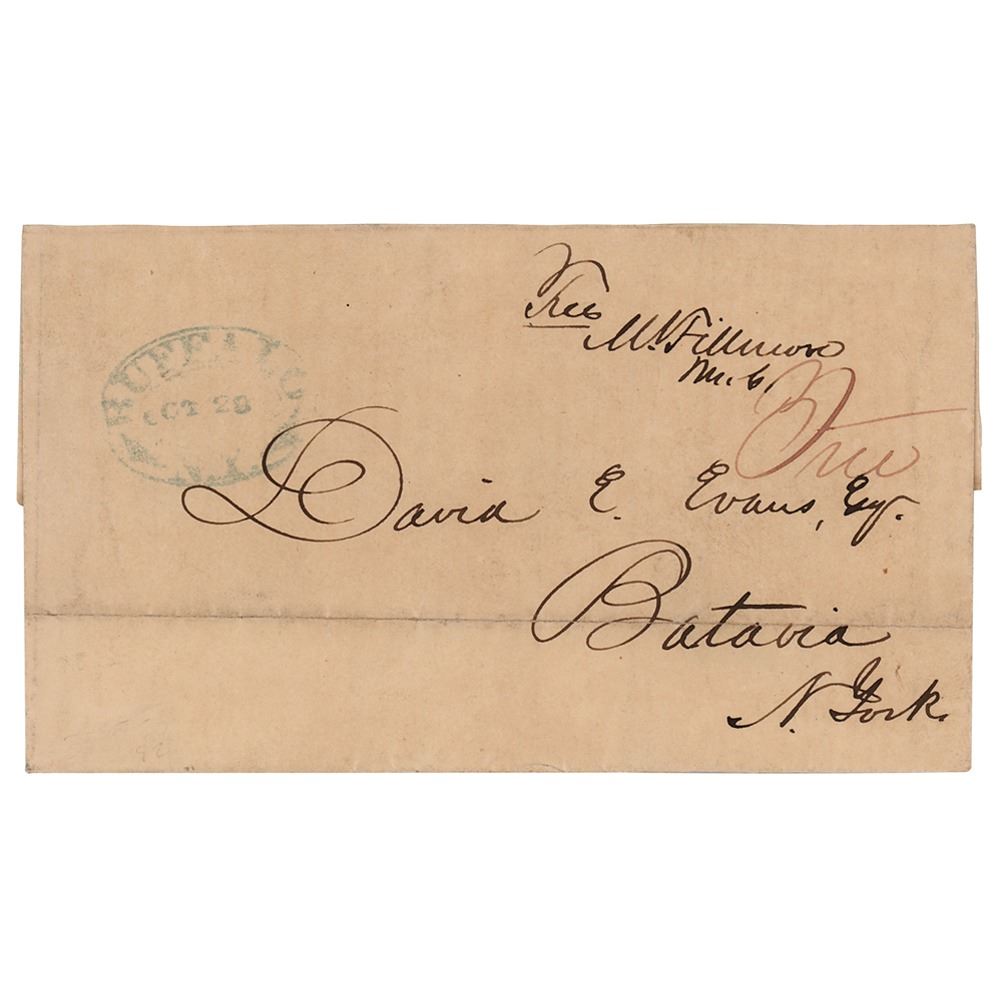 Free
M. Fillmore
M.C.
BUFFALO
OCT 28
N.Y.
Free
David E. Evans, Esq.
Batavia
N. York.